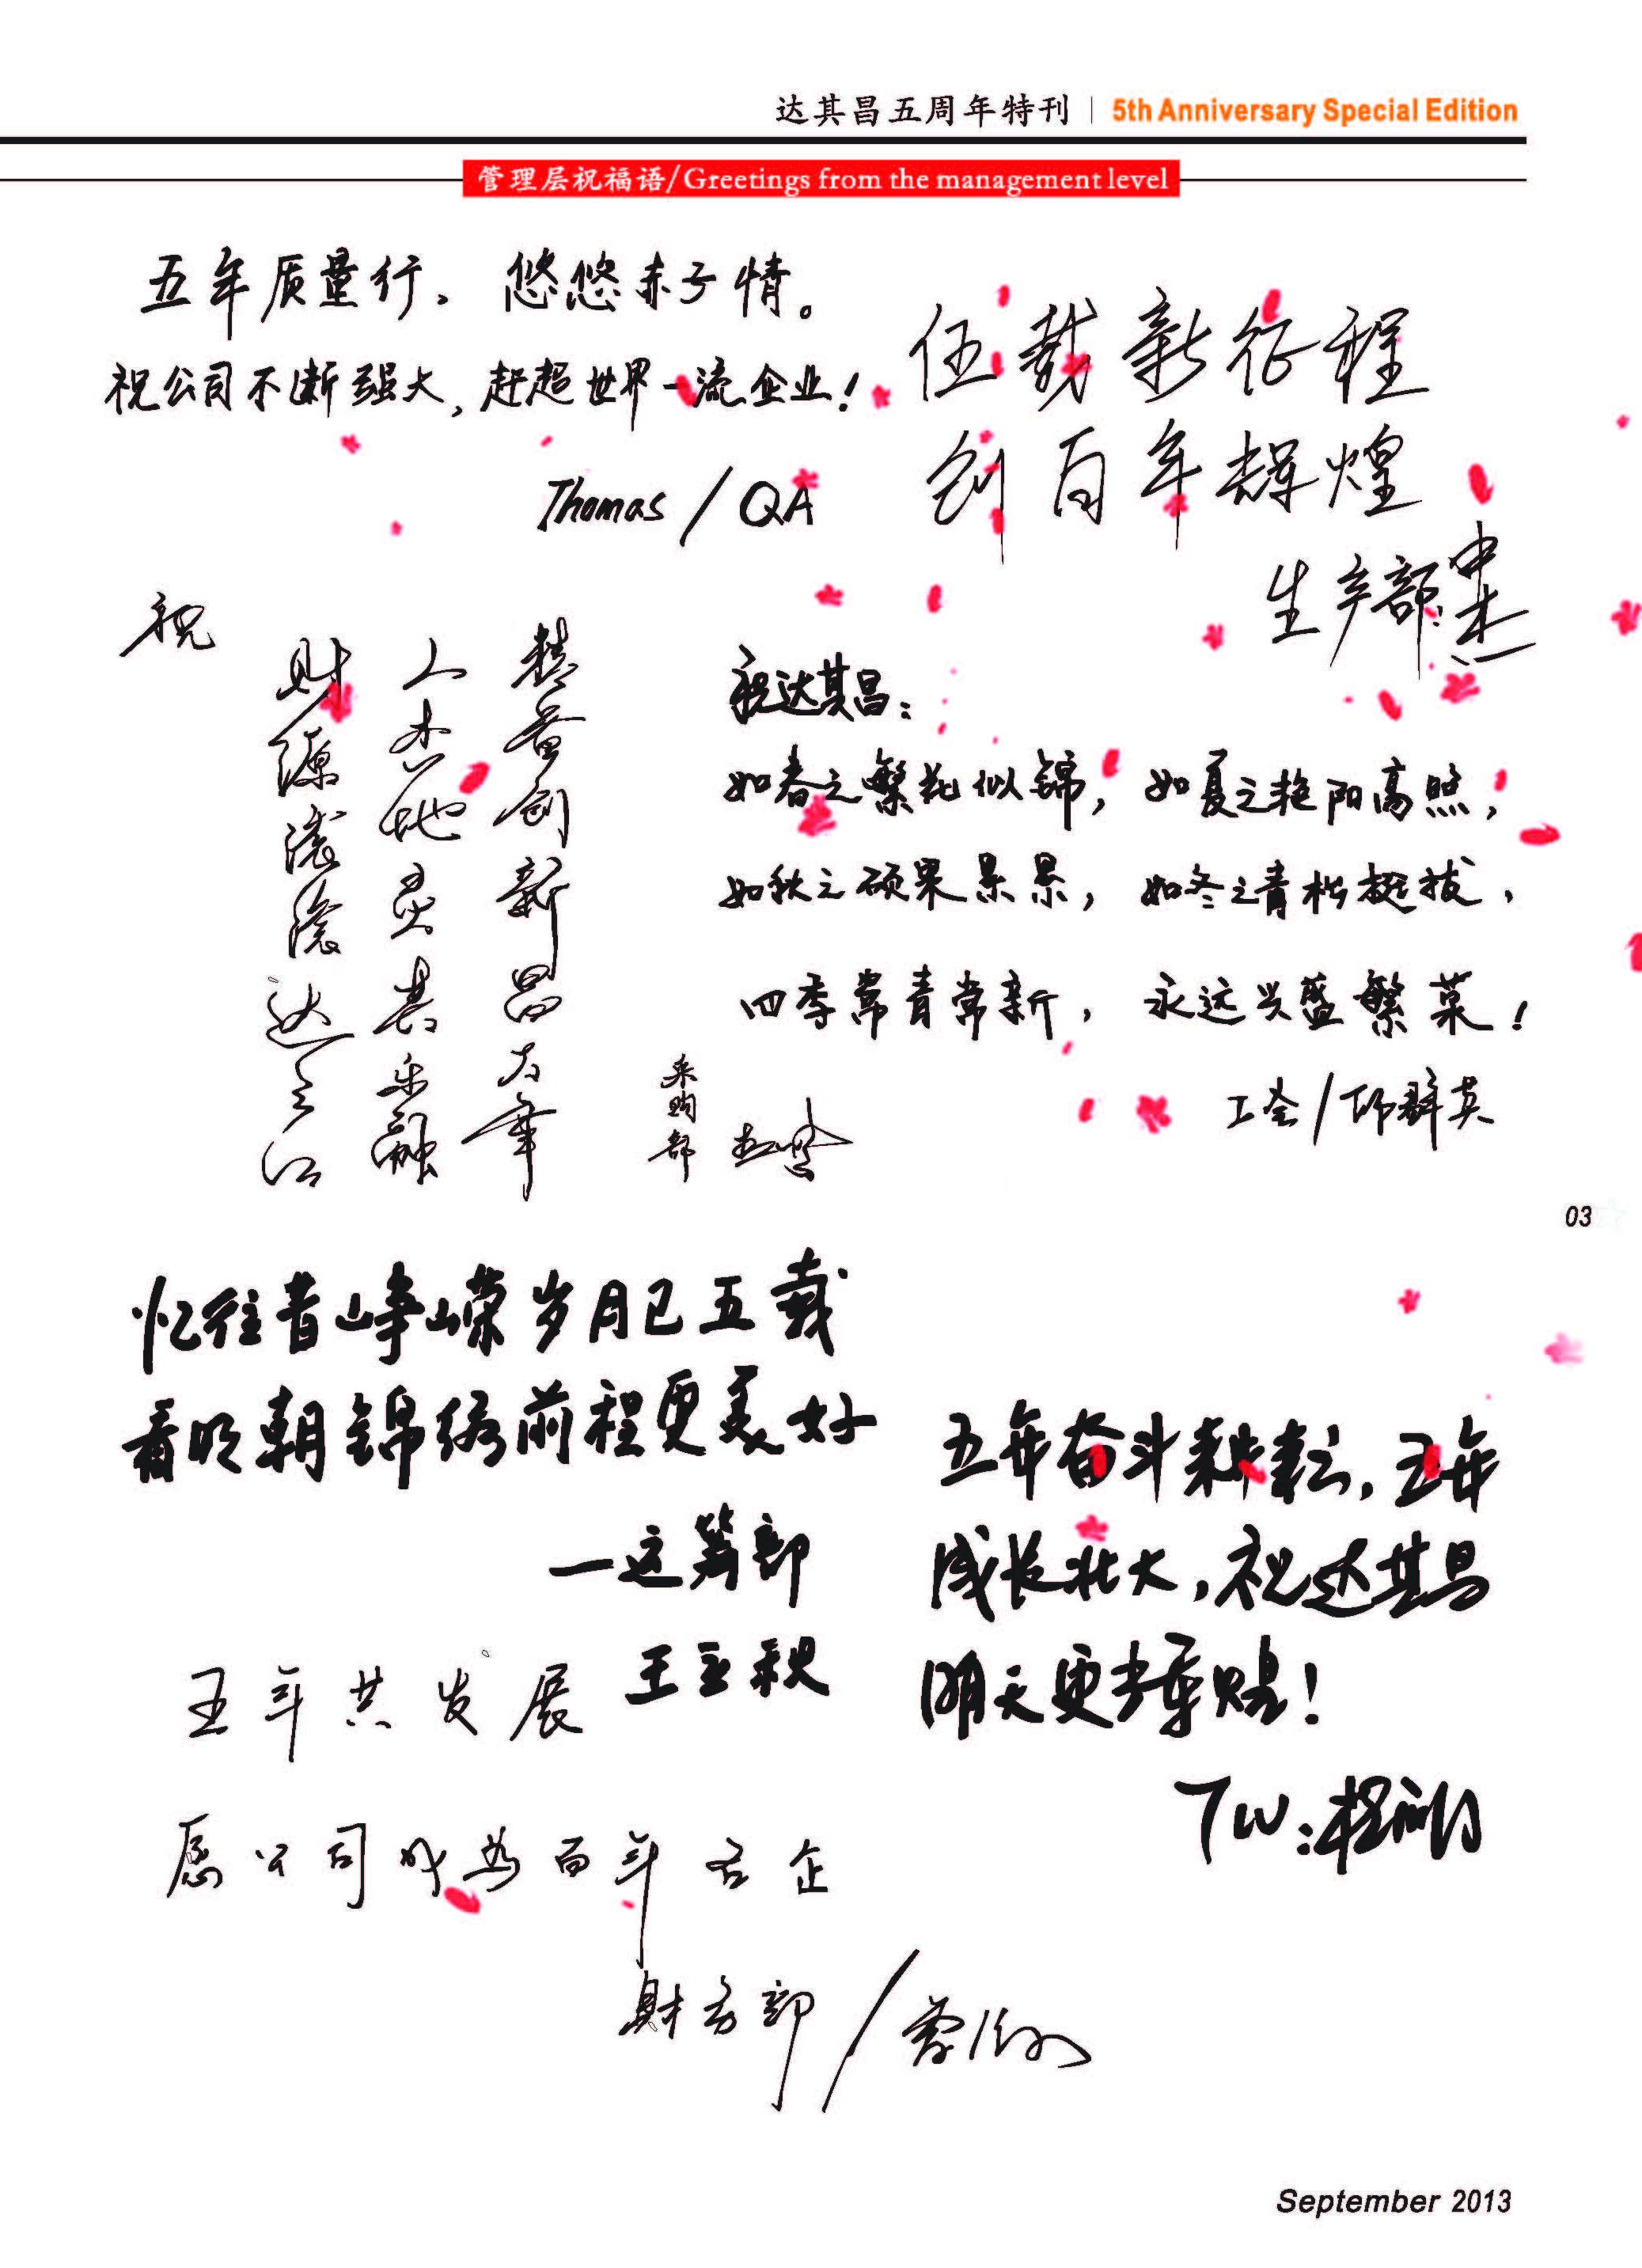 达其昌五周年特刊 | 5th Anniversary Special Edition
管理层祝福语/Greetings from the management level
五年质量行。悠悠赤子情。
祝公司不断强大,赶超世界一流企业!
Thomas / QA
伍载新征程
创百年辉煌
生产部:
祝
精益创新昌太華
人杰地灵其乐融
财源滚滚达三江
采购部
祝达其昌:
如春之繁花似锦,如夏之艳阳高照,
如秋之硕果累累,如冬之青松挺拔,
四季常青常新,永远兴盛繁荣!
工会/邝群英
03
忆往昔峥嵘岁月已五载
看明朝锦绣前程更美好
—运筹部
王立秋
五年奋斗耕耘,五年
成长壮大,祝达其昌
明天更加辉煌!
TW:
五年共发展
愿公司成为百年名企
财务部/
September 2013